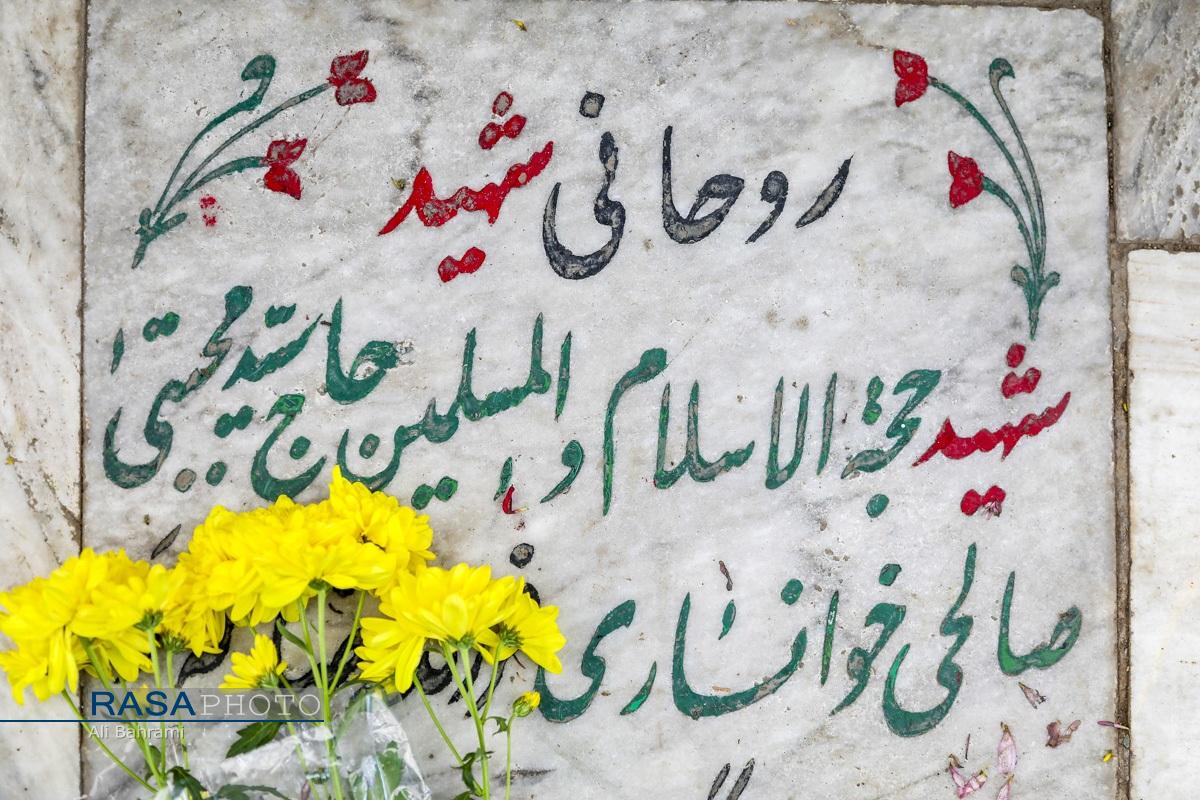 روحانی شهید
شهید حجة الاسلام و المسلمین حاج سید مجتبی
صالحی خوانساری
RASA PHOTO
Ali Bahrami